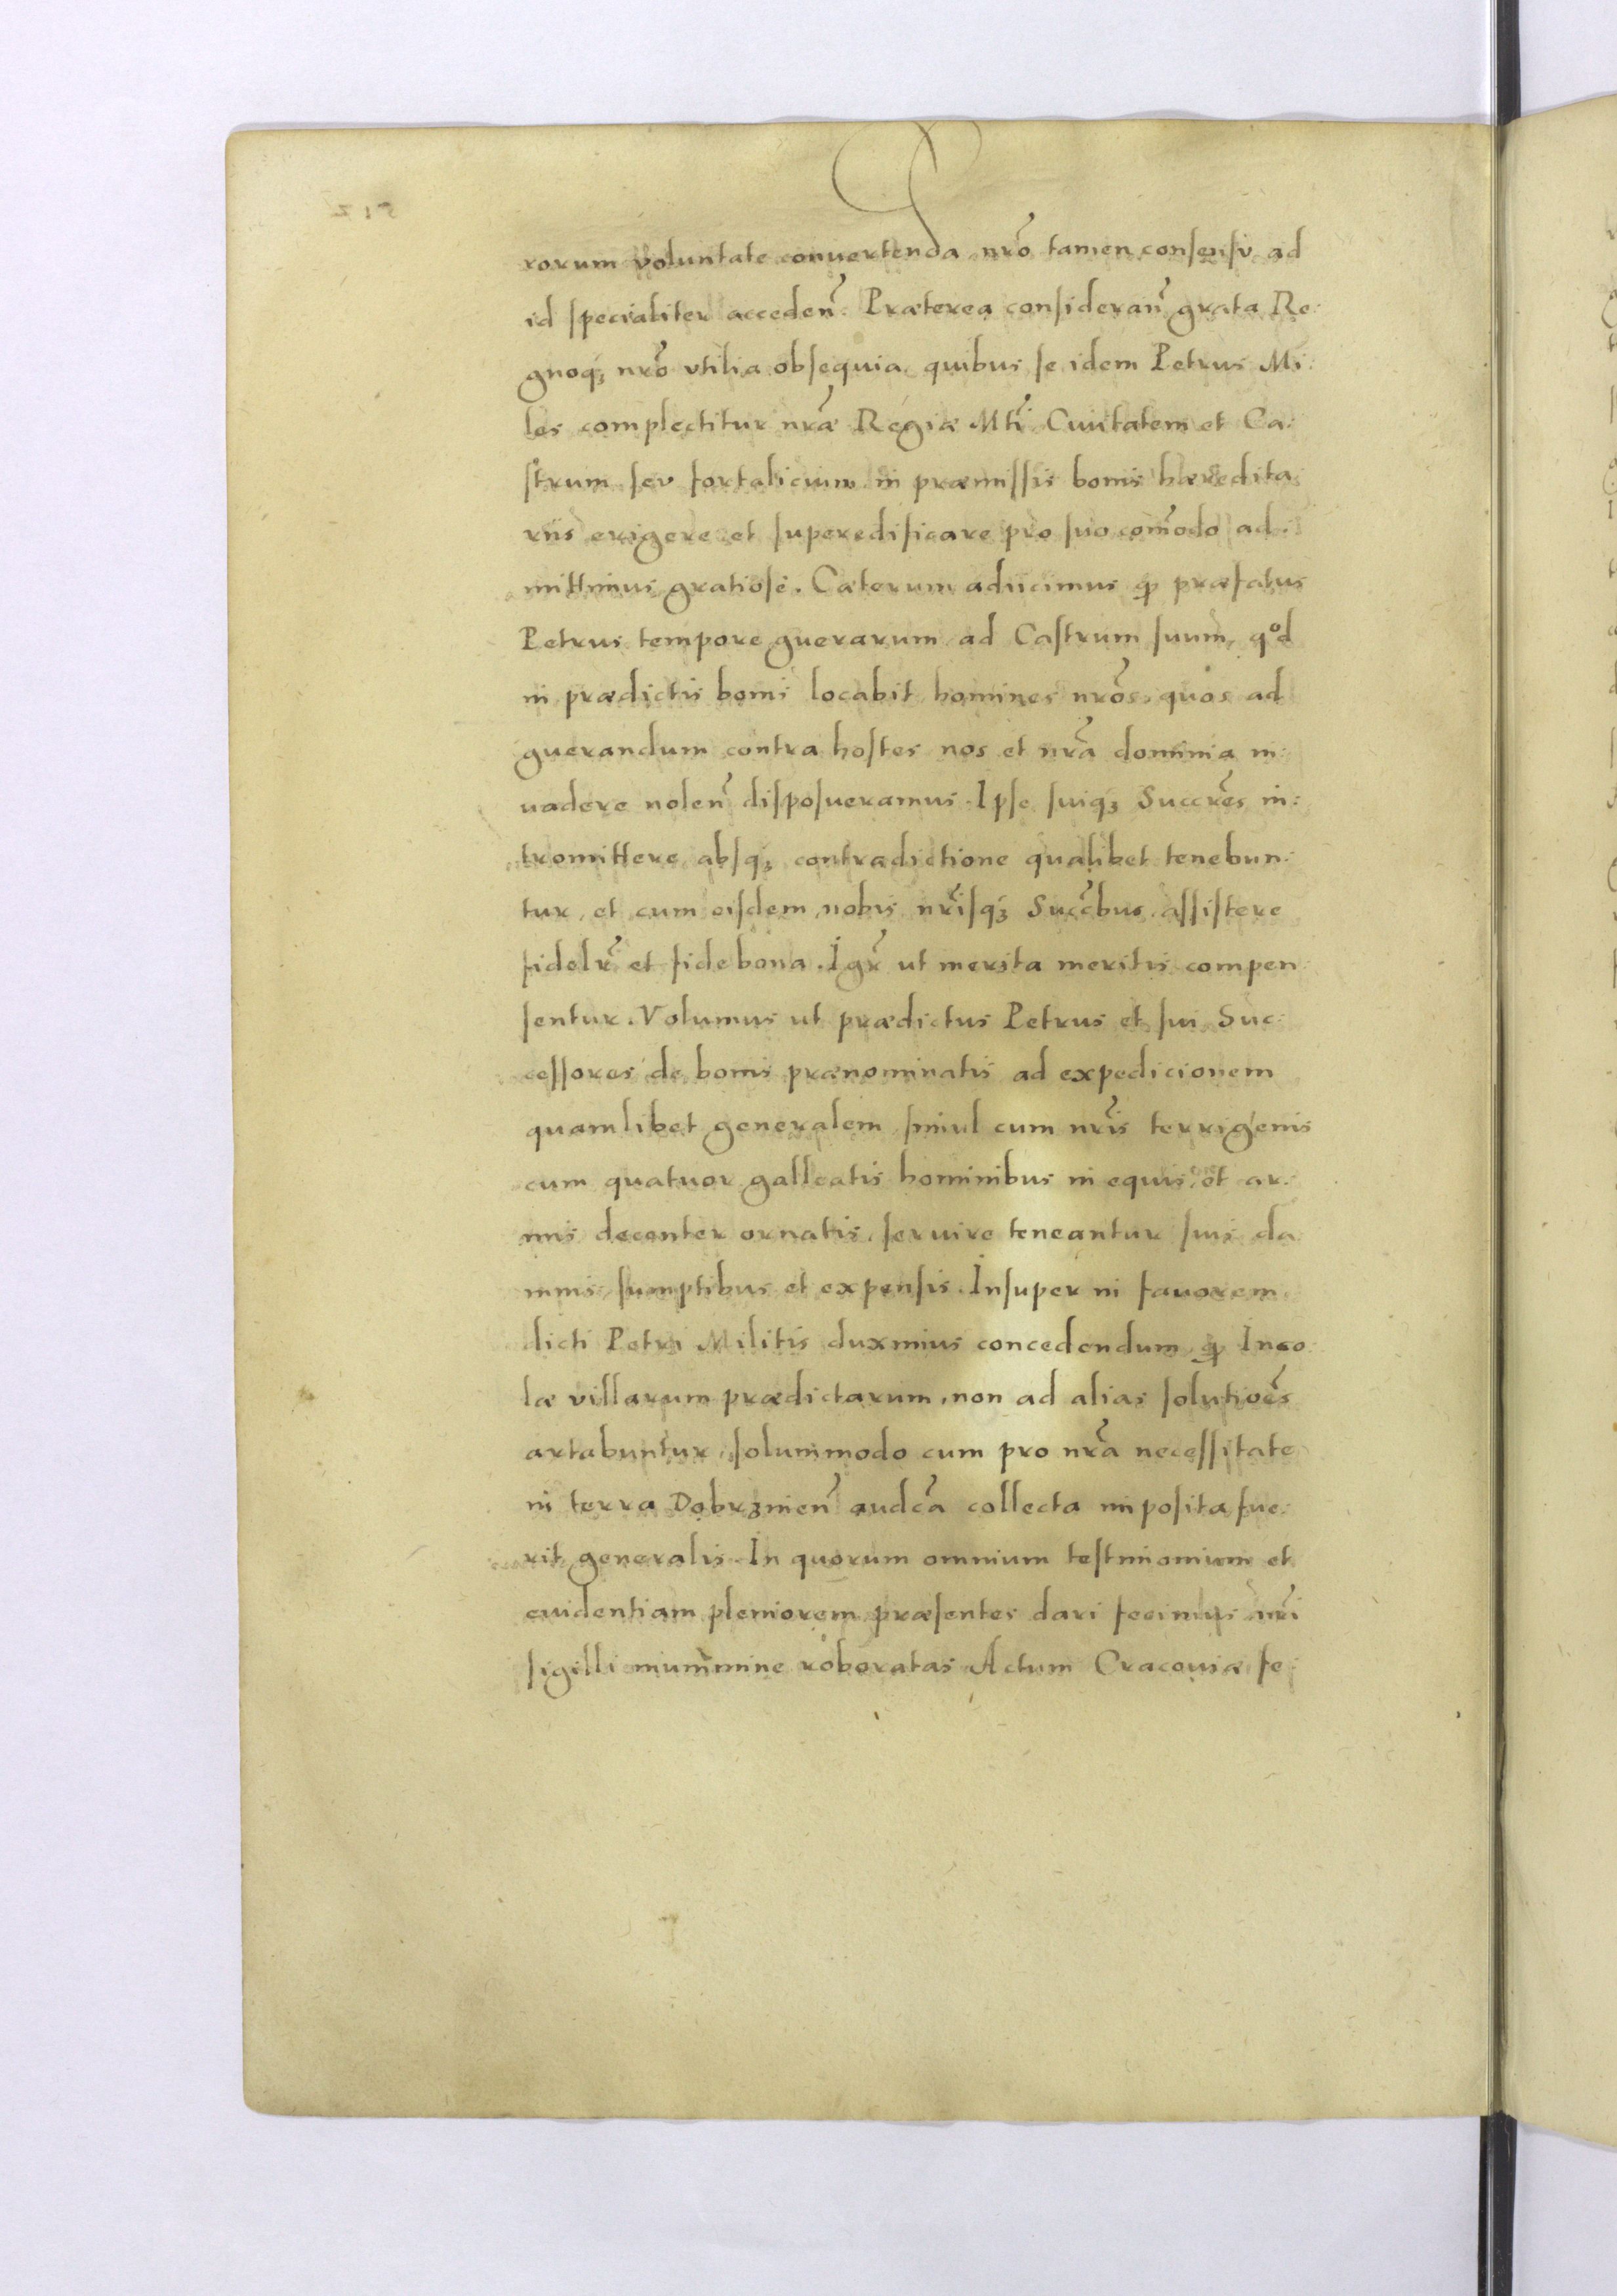 rorum voluntate convertenda, nrõ tamen consensv ad
id specialiter acceden̄. Præterea consideran̄ grata Re:
gnoq₃ nrõ vtilia obsequia, quibus se idem Petrus Mi:
les complectitur nræ̃ Regiæ Mtĩ Ciuitatem et Ca:
strum sev fortalicium in præmissis bonis hæredita
riis erigere et superedificare pro suo com̃odo ad:
mittimus gratiose. Cæterum adiicimus ꝙ præfatus
Petrus tempore guerarum ad Castrum suum, qᵒd
in prædictis bonis locabit homines nrõs, quos ad
guerandum contra hostes nos et nrã dominia in:
uadere nolen̄ disposueramus. Ipse suiq₃ Succr̃es in:
tromittere absq₃ contradictione qualibet tenebun:
tur, et cum eisdem nobis nrĩsq₃ Succ̃bus assistere
fidelr̃ et fide bona. Igr̃ ut merita meritis compen:
sentur. Volumus ut prædictus Petrus et sui Suc:
cessores de bonis prænominatis ad expedicionem
quamlibet generalem simul cum nrĩs terrigenis
cum quatuor galleatis hominibus in equis et ar:
mis decenter ornatis, seruire teneantur suis da
mnis, sumptibus et expensis. Insuper in fauorem
dicti Petri Militis duximus concedendum, ꝙ Inco:
læ villarum prædictarum, non ad alias solutioẽs
artabuntur, solummodo cum pro nrã necessitate
in terra Dobrznien̄ audc̃a collecta imposita fue:
rit generalis. In quorum omnium testimonium et
euidentiam pleniorem præsentes dari fecimus nrĩ
sigilli munimine roboratas Actum Cracouiæ fe: